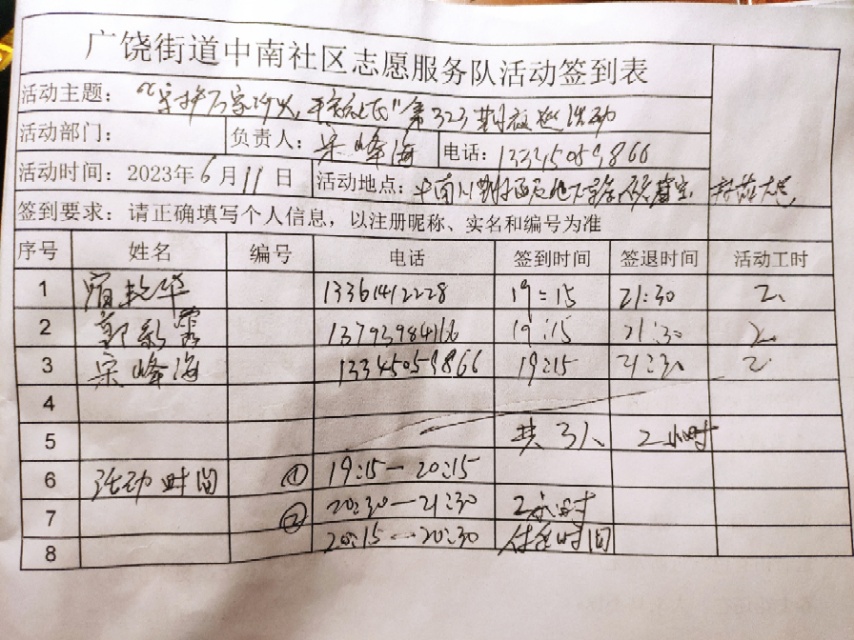 广饶街道中南社区志愿服务队活动签到表
活动主题："守护万家灯火,平安社区"第323期夜巡活动
活动部门： 负责人：宋峰海 电话：13345059866
活动时间：2023年6月11日 活动地点：中南
签到要求：请正确填写个人信息，以注册昵称、实名和编号为准
序号 姓名 编号 电话 签到时间 签退时间 活动工时
1 13361412228 19:15 21:30 2
2 郭新霞 13793984166 19:15 21:30 2
3 宋峰海 13345059866 19:15 21:30 2
4
5 共3人 2小时
6 活动时间 ① 19:15—20:15
7 ② 20:30—21:30 2小时
8 20:15—20:30 休息时间